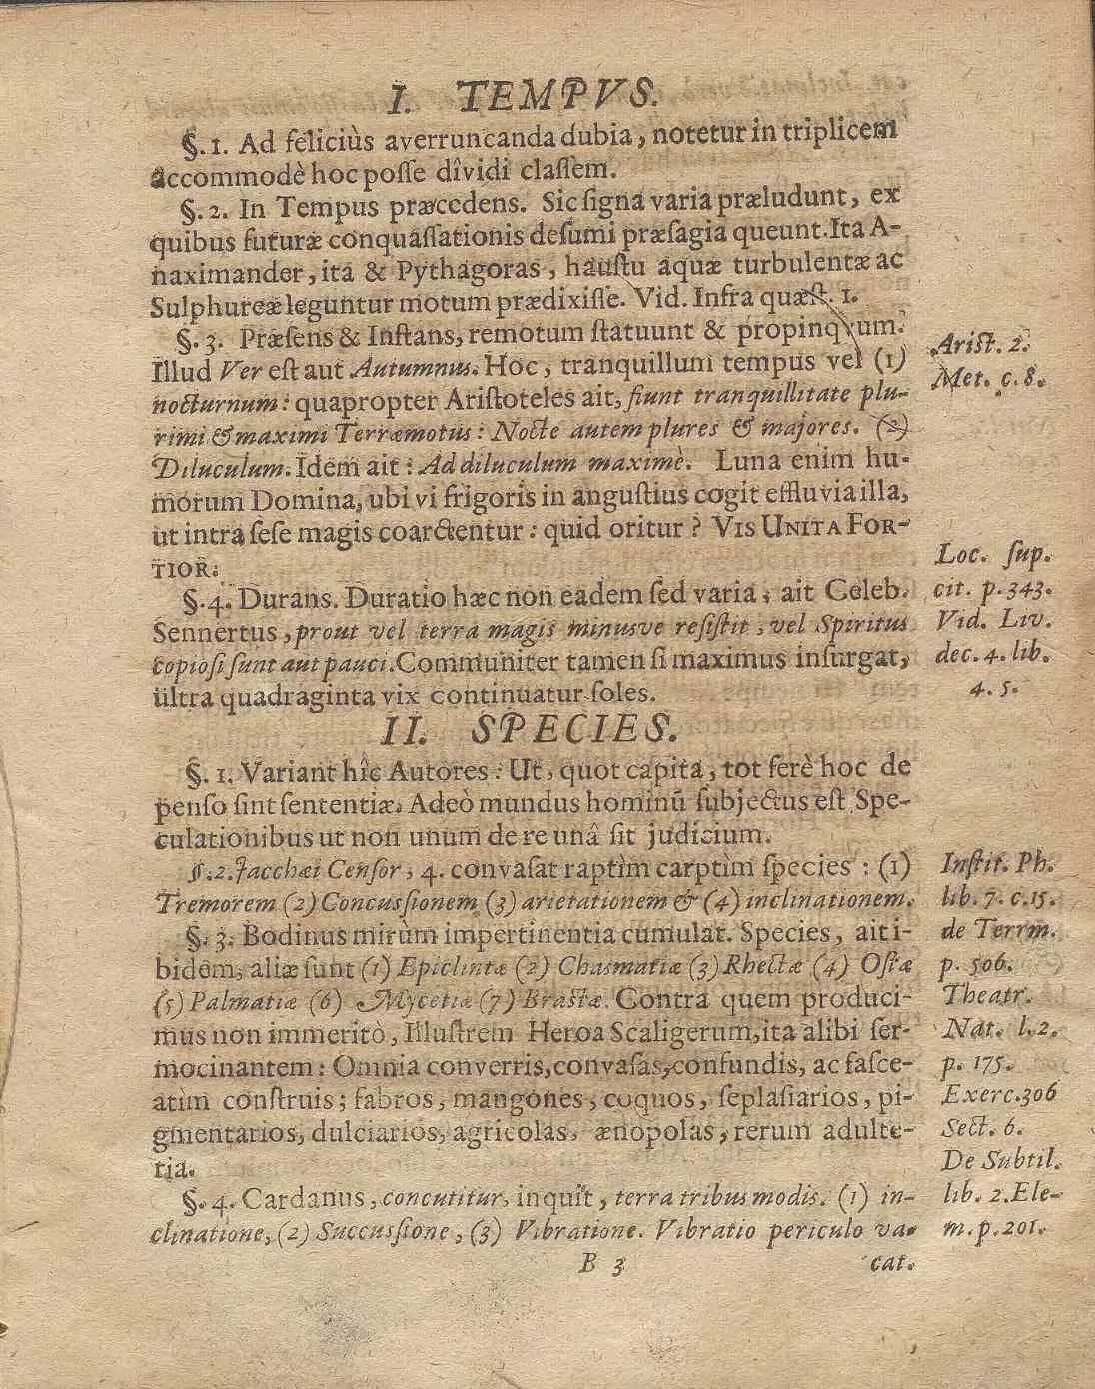 I. TEMPVS.
§. 1. Ad feliciùs averruncanda dubia, notetur in triplicem
accommodè hoc posse dîvidi classem.
§. 2. In Tempus præcedens. Sic signa varia præludunt, ex
quibus futuræ conquassationis desumi præsagia queunt. Ita A-
naximander, ita & Pythagoras, haustu aquæ turbulentæ ac
Sulphureæ leguntur motum prædixisse. Vid. Infra quæst. 1.
§. 3. Præsens & Instans, remotum statuunt & propinqvum.
Illud Ver est aut Autumnus. Hoc, tranquillum tempus vel (1)
nocturnum: quapropter Aristoteles ait, fiunt tranquillitate plu-
rimi & maximi Terræmotus: Nocte autem plures & majores. (2)
Diluculum. Idem ait: Ad diluculum maximè. Luna enim hu-
morum Domina, ubi vi frigoris in angustius cogit effluvia illa,
ut intra sese magis coarctentur: quid oritur? VIS UNITA FOR-
TIOR.
§. 4. Durans. Duratio hæc non eadem sed varia, ait Celeb.
Sennertus, prout vel terra magis minusve resistit, vel Spiritus
copiosi sunt aut pauci. Communiter tamen si maximus insurgat,
ultra quadraginta vix continuatur soles.
Arist. 2.
Met. c. 8.
Loc. sup.
cit. p. 343.
Vid. Liv.
dec. 4. lib.
4. 5.
II. SPECIES.
§. 1. Variant hîc Autores: Ut, quot capita, tot ferè hoc de
penso sint sententiæ. Adeò mundus hominũ subjectus est Spe-
culationibus ut non unum de re unâ sit judicium.
§. 2. Jacchæi Censor, 4. convasat raptìm carptìm species: (1)
Tremorem (2) Concussionem (3) arietationem & (4) inclinationem.
§. 3. Bodinus mirùm impertinentia cumulat. Species, ait i-
bidem, aliæ sunt (1) Epiclintæ (2) Chasmatiæ (3) Rhectæ (4) Ostæ
(5) Palmatiæ (6) Mycetiæ (7) Brastæ. Contra quem produci-
mus non immeritò, Illustrem Heroa Scaligerum, ita alibi ser-
mocinantem: Omnia converris, convasas, confundis, ac fasce-
atim construis; fabros, mangones, coquos, seplasiarios, pi-
gmentarios, dulciarios, agricolas, ænopolas, rerum adulte-
ria.
§. 4. Cardanus, concutitur, inquit, terra tribus modis. (1) in-
clinatione, (2) Succussione, (3) Vibratione. Vibratio periculo va-
Instit. Ph.
lib. 7. c. 15.
de Terrm.
p. 506.
Theatr.
Nat. l. 2.
p. 175.
Exerc. 306
Sect. 6.
De Subtil.
lib. 2. Ele-
m. p. 201.
B 3
cat.